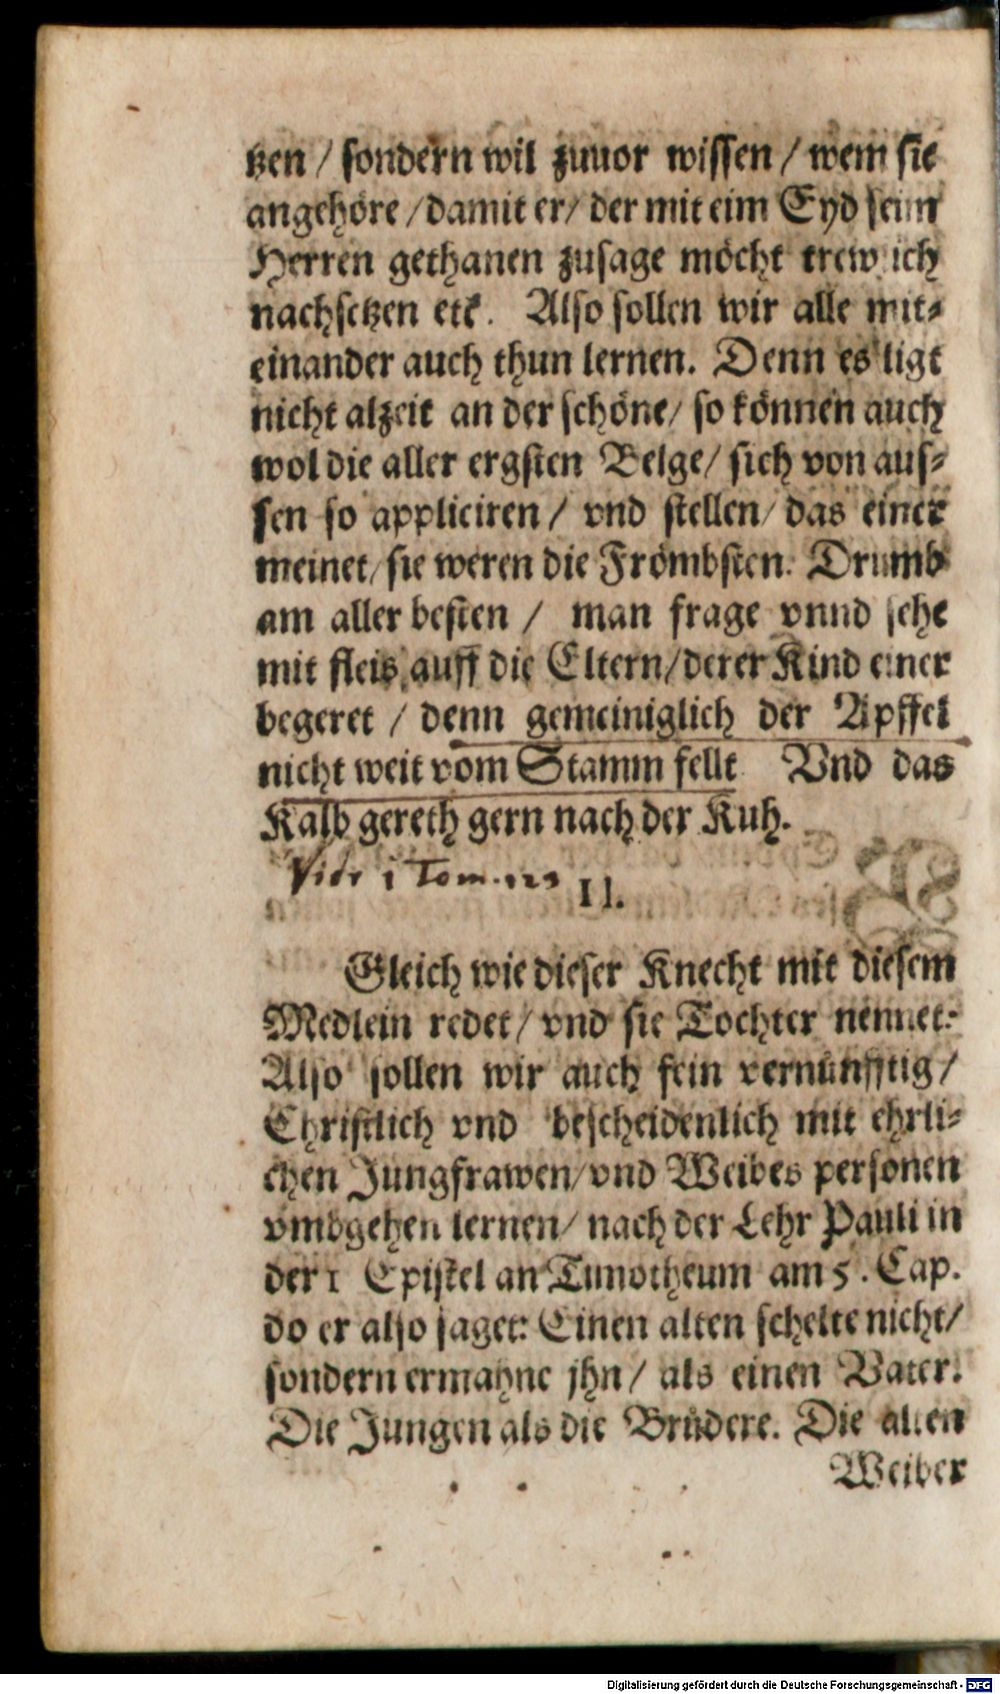 tzen / sondern wil zuuor wissen / wem sie
angehöre / damit er / der mit eim Eyd seim
Herren gethanen zusage möcht trewlich
nachsetzen etc. Also sollen wir alle mit-
einander auch thun lernen. Denn es ligt
nicht alzeit an der schöne / so können auch
wol die aller ergsten Belge / sich von aus-
sen so appliciren / vnd stellen / das einer
meinet / sie weren die Frömbsten. Drumb
am aller besten / man frage vnnd sehe
mit fleis auff die Eltern / derer Kind einer
begeret / denn gemeiniglich der Apffel
nicht weit vom Stamm fellt Vnd das
Kalb gereth gern nach der Kuh.
i Tom.
II.
Gleich wie dieser Knecht mit diesem
Medlein redet / vnd sie Tochter nennet:
Also sollen wir auch fein vernünfftig /
Christlich vnd bescheidenlich mit ehrli-
chen Jungfrawen / vnd Weibes personen
vmbgehen lernen / nach der Lehr Pauli in
der 1 Epistel an Timotheum am 5. Cap.
do er also saget: Einen alten schelte nicht /
sondern ermahne jhn / als einen Vater.
Die Jungen als die Brüdere. Die alten
Weiber
Digitalisierung gefördert durch die Deutsche Forschungsgemeinschaft - DFG